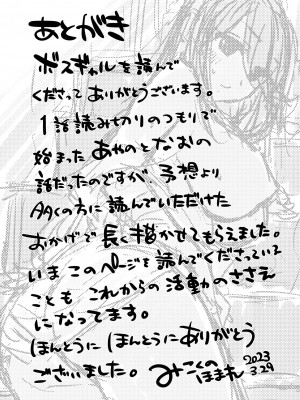 あとがき
ボスギャルを読んで
くださってありがとうございます。
1話読み切りのつもりで
始まったあやのとなおの
話だったのですが、予想より
多くの方に読んでいただけた
おかげで長く描かせてもらえました。
いまこのページを読んでくださっている
ことも これからの活動のささえ
になってます。
ほんとうにほんとうにありがとう
ございました。みこくのほまれ 2023 3.29